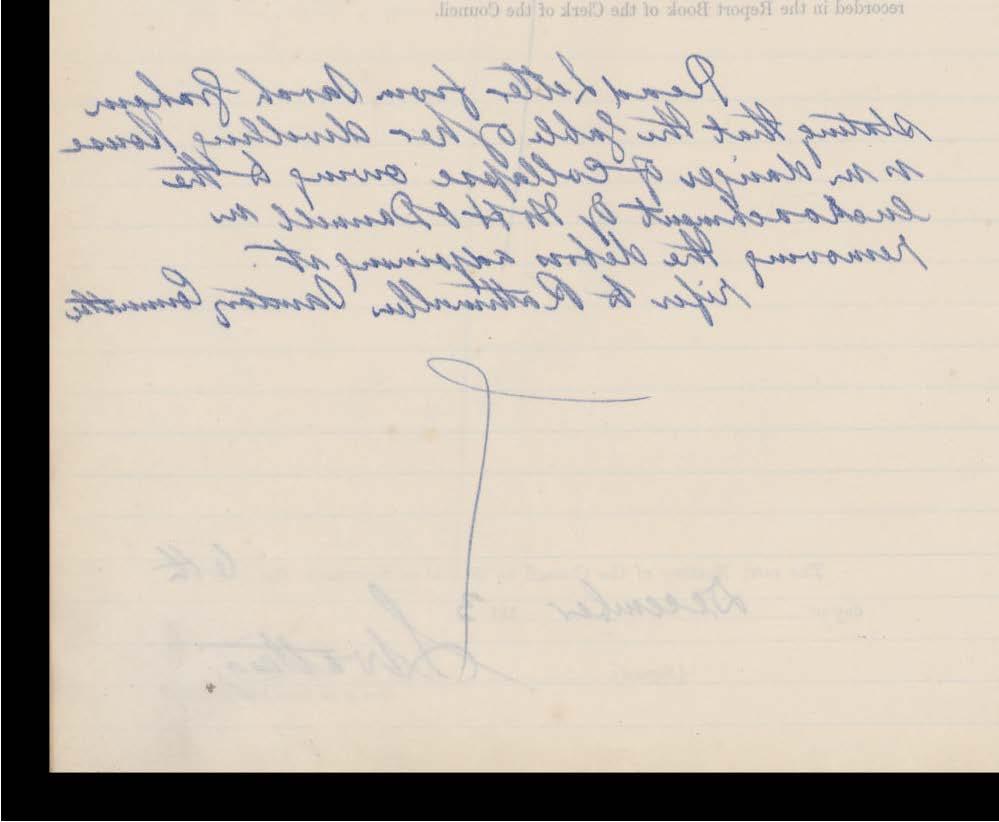 recorded in the Report Book of the Clerk of the Council.
Read Letter from Sarah Graham
stating that the Gable of her dwelling House
is in danger of Collapse owing to the
encroachment of W H O Donnell in
removing the debris adjoining it
refer to Rathmullan Sanitary Committee
The next Meeting of the Council 6th
day of December 3